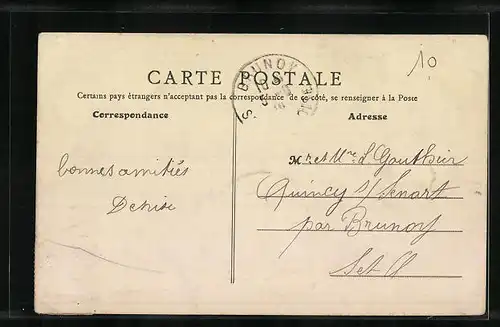 10
BRUNOY
CARTE POSTALE
Certains pays étrangers n'acceptant pas la correspondance de ce côté, se renseigner à la Poste
Correspondance
Adresse
bonnes amitiés
Denise
M. et Mme L Gauthier
Quincy s/ Senart
par Brunoy
S et O